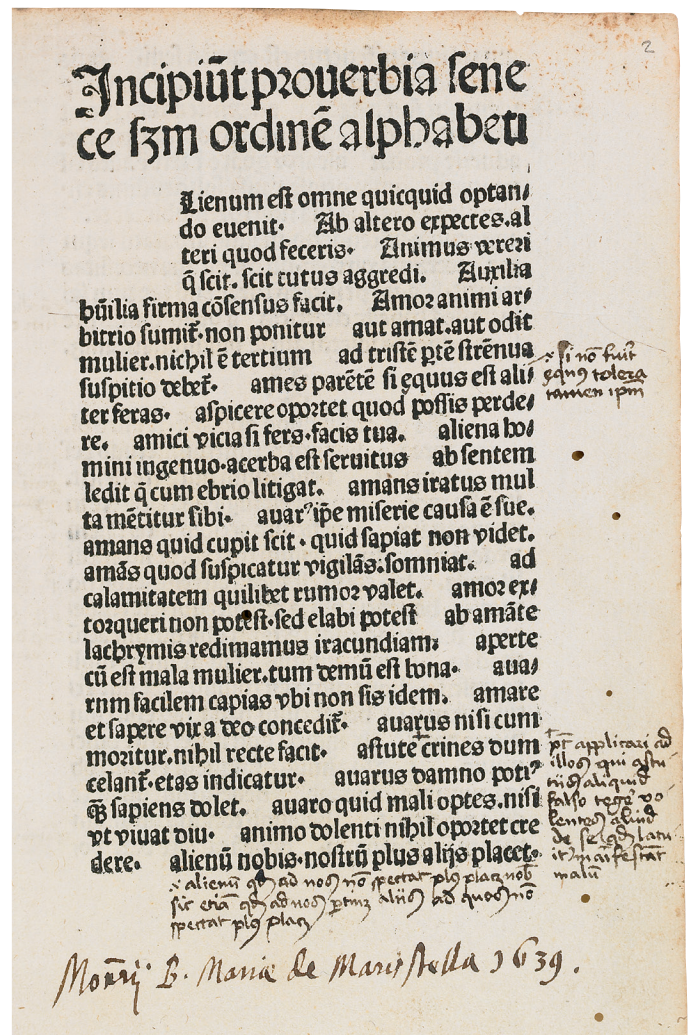 2
Incipiūt prouerbia sene
ce sꝫm ordinē alphabeti
Lienum est omne quicquid optan⸗
do euenit. Ab altero expectes.al
teri quod feceris. Animus vereri
q̄ scit. scit tutus aggredi. Auxilia
hūilia firma cōsensus facit. Amor animi ar⸗
bitrio sumit᷑.non ponitur aut amat.aut odit
mulier.nichil ē tertium ad tristē ꝑtē strēnua
suspitio debet᷑. ames parētē si equus est ali⸗
ter feras. aspicere oportet quod possis perde⸗
re. amici vicia si fers.facis tua. aliena ho⸗
mini ingenuo.acerba est seruitus ab sentem
ledit q̄ cum ebrio litigat. amans iratus mul
ta mētitur sibi. auarꝰ ip̄e miserie causa ē sue.
amans quid cupit scit . quid sapiat non videt.
amās quod suspicatur vigilās.somniat. ad
calamitatem quilibet rumor valet. amor ex⸗
torqueri non potest.sed elabi potest ab amāte
lachrymis redimamus iracundiam: aperte
cū est mala mulier.tum demū est bona. aua⸗
rnm facilem capias vbi non sis idem. amare
et sapere vix a deo concedit᷑. auarus nisi cum
moritur.nihil recte facit. astute crines dum
celant᷑.etas indicatur. auarus damno potiꝰ
ꝙ̄ sapiens dolet. auaro quid mali optes.nisi
vt viuat diu. animo dolenti nihil oportet cre
dere. alienū nobis.nostrū plus alijs placet.
si nō fuit
equꝰ tolera
tamen ip̄m
pt̄ applicari ad
illos qui astu
tiis aliquid
falso tegē vo
lentes aliud
de se
manifestāt
malū
alienū qd̄ ad nos nō spectat plꝰ placꝫ nob̄
sic etiā qd̄ ad nos ꝑtinꝫ aliis ad quos nō
spectat plꝰ placꝫ
Monrij B. Mariæ de Maris stella 1639.